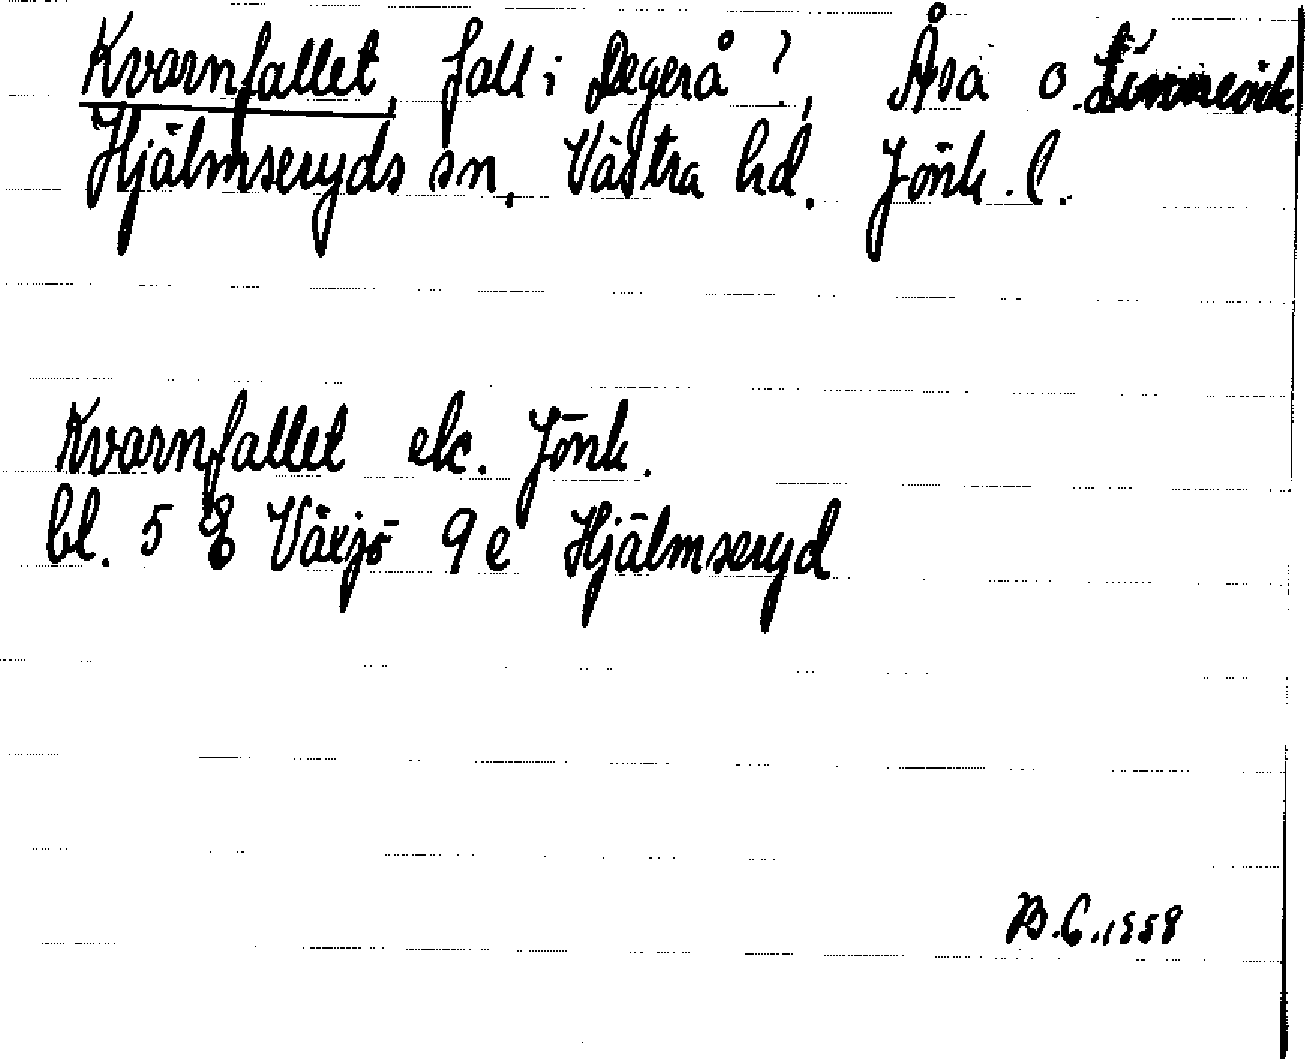 Kvarnfallet, fall i Degerå?, Åsa o
Hjälmseryds sn, Västra hd. Jönk. l.
Kvarnfallet ek. Jönk.
bl. 5 E Växjö 9 e Hjälmseryd
B.G. 1958